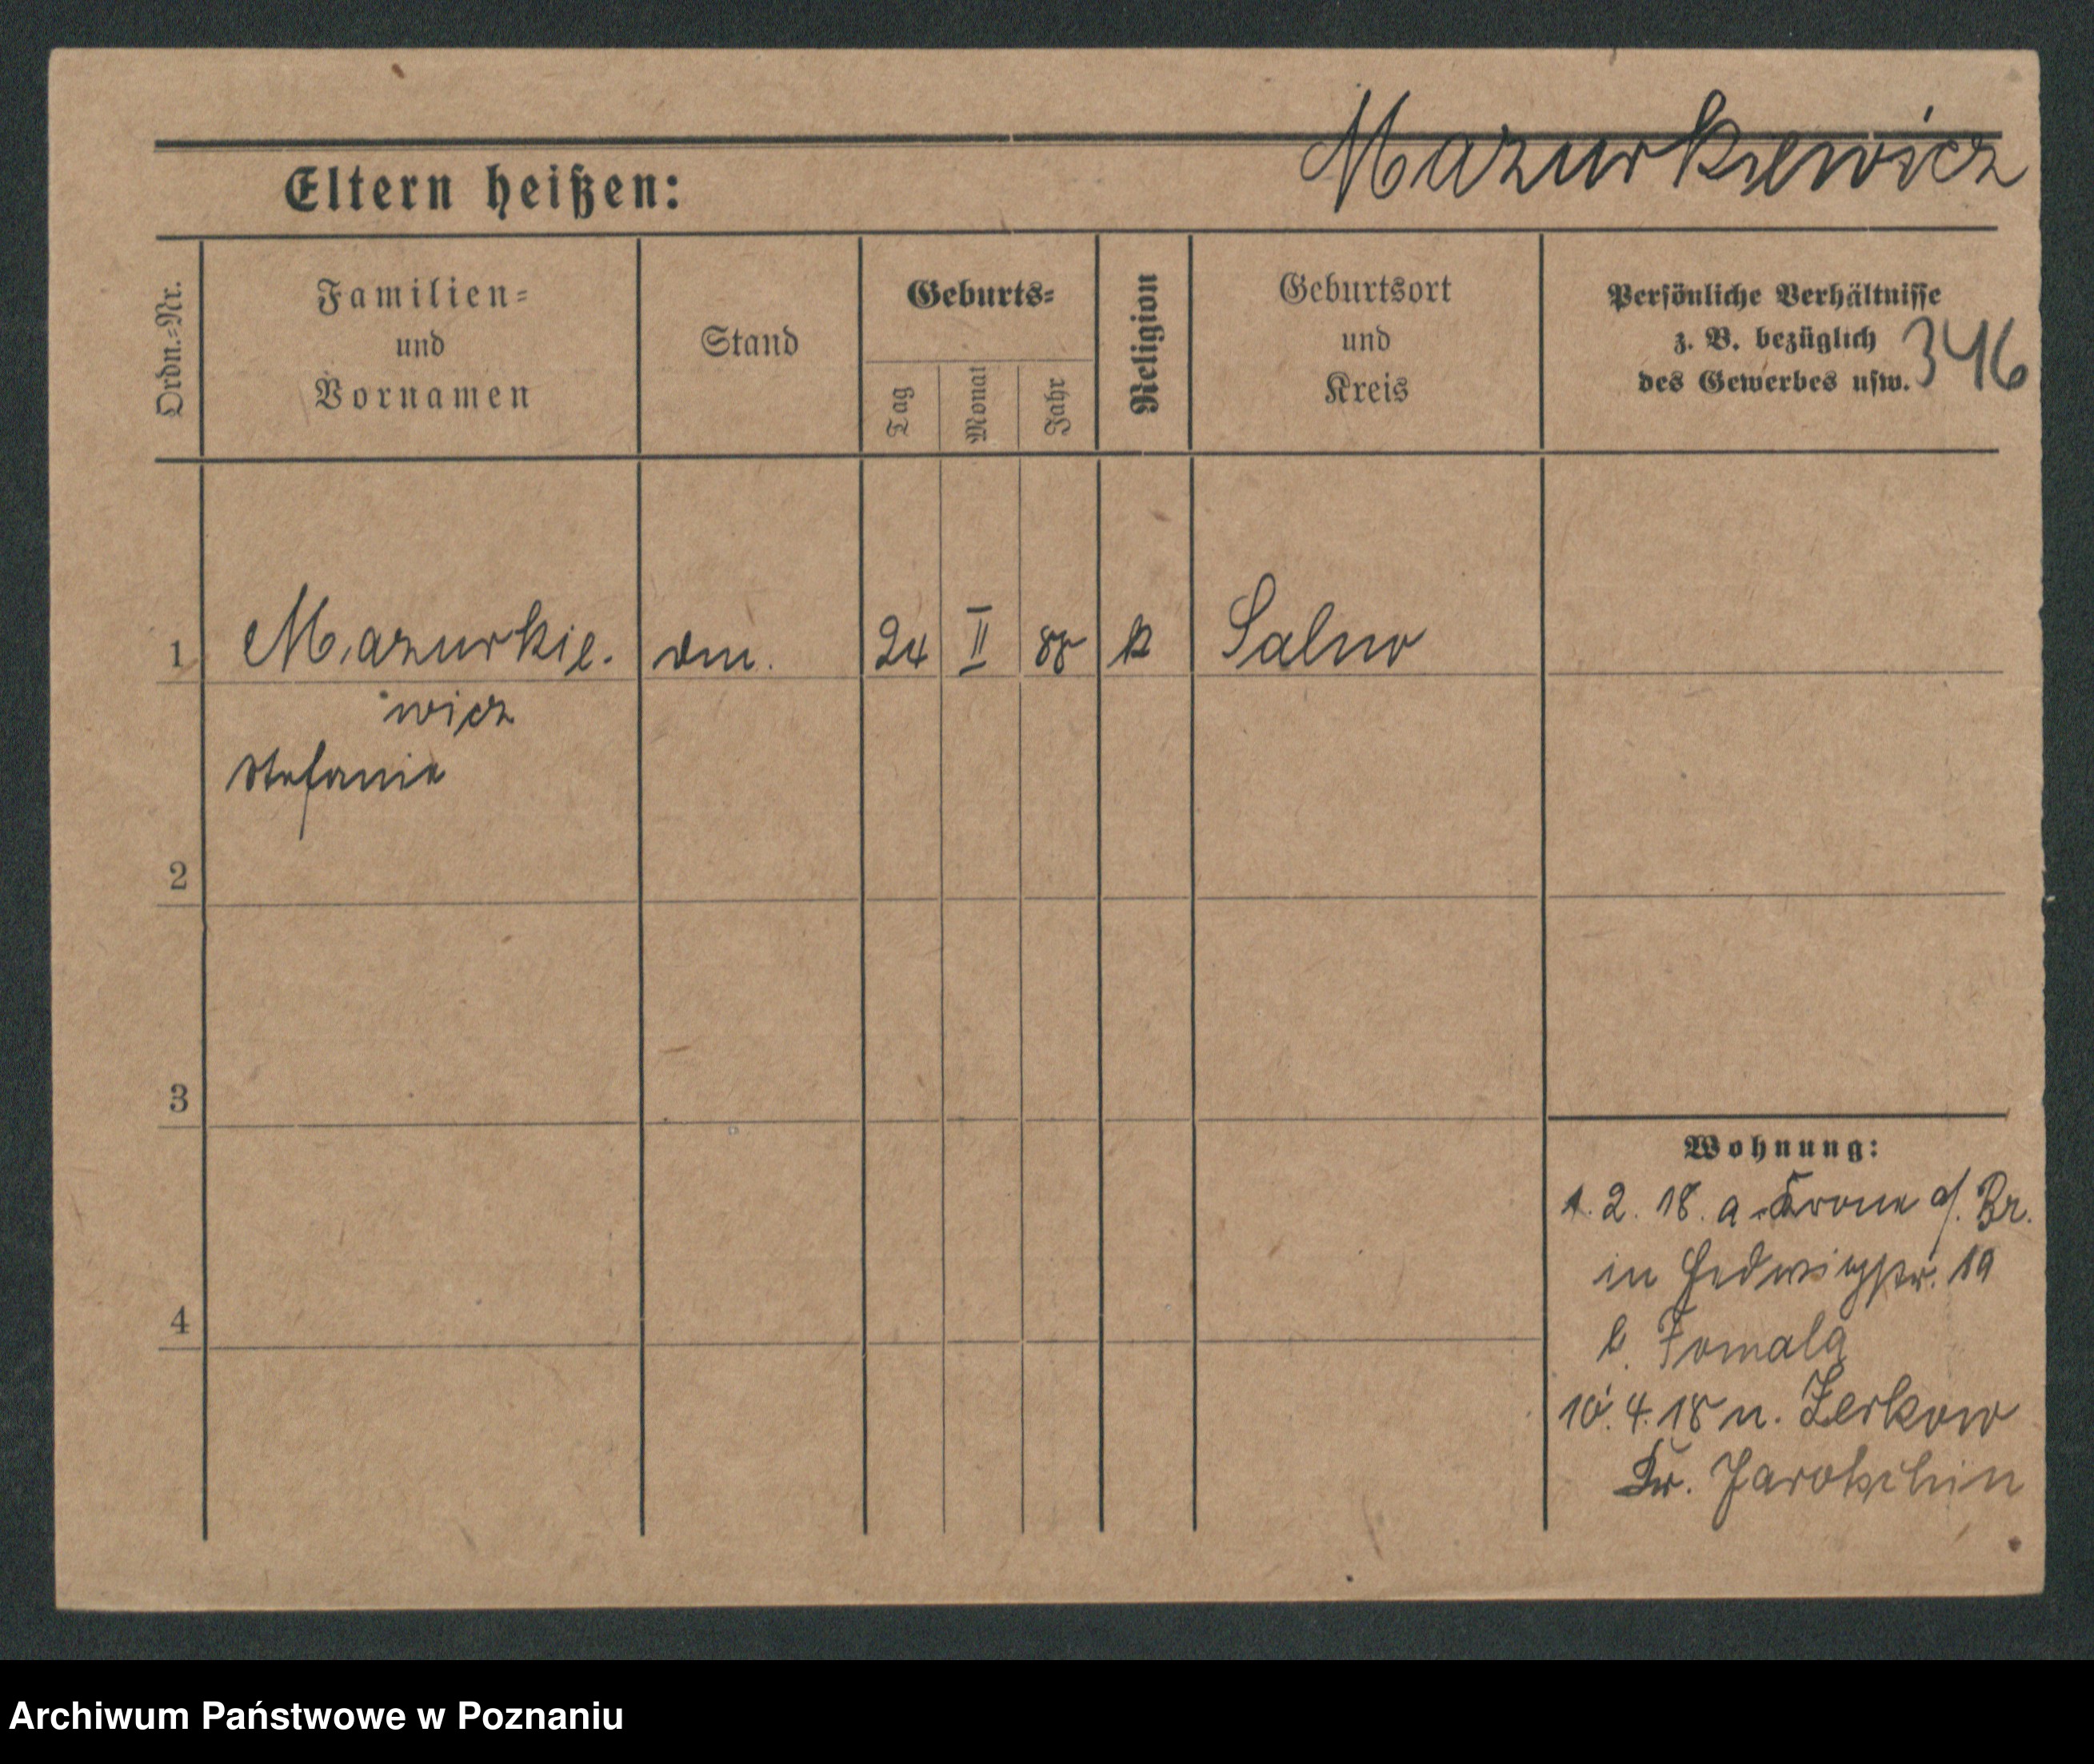 Mazurkiewicz
Eltern heißen:
Ordn.-Nr.
Familien-
und
Vornamen
Stand
Geburts-
Tag
Monat
Jahr
Religion
Geburtsort
und
Kreis
Persönliche Verhältnisse
z. B. bezüglich
des Gewerbes usw.
346
1 Mazurkie. 24 II 88 k Salno
wicz
Stefanie
2
3
4
Wohnung:
1. 2. 18. a Krone a/. Br.
in Hedwigstr. 19
b. Tomala
10. 4. 18 n. Zerkow
Kr. Jarotschin
Archiwum Państwowe w Poznaniu